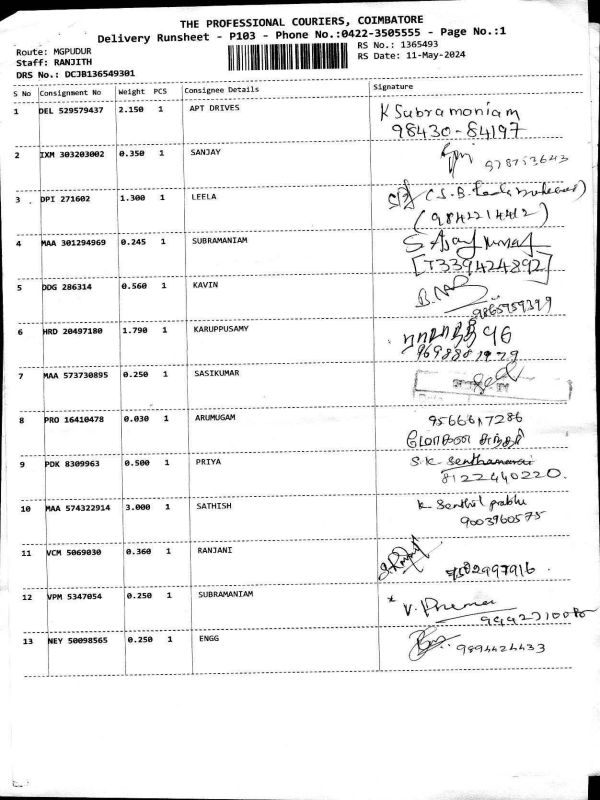 THE PROFESSIONAL COURIERS, COIMBATORE
Delivery Runsheet - P103 - Phone No.:0422-3505555 - Page No.:1
Route: MGPUDUR
RS No.: 1365493
Staff: RANJITH
RS Date: 11-May-2024
DRS No.: DCJB136549301
S No Consignment No Weight PCS Consignee Details Signature
1 DEL 529579437 2.150 1 APT DRIVES K Subramoniam
98430-84197
2 IXM 303203002 0.350 1 SANJAY
3 DPI 271602 1.300 1 LEELA
(9842214412)
4 MAA 301294969 0.245 1 SUBRAMANIAM S Ajay Kumar
[T339424892]
5 DDG 286314 0.560 1 KAVIN
9865959399
6 HRD 20497180 1.790 1 KARUPPUSAMY
7 MAA 573730895 0.250 1 SASIKUMAR
8 PRO 16410478 0.030 1 ARUMUGAM
மோகன சுந்தரி
9 PDK 8309963 0.500 1 PRIYA S.K. Senthamarai
8122440220.
10 MAA 574322914 3.000 1 SATHISH K Senthil prabhu
9003960575
11 VCM 5069030 0.360 1 RANJANI
12 VPM 5347054 0.250 1 SUBRAMANIAM V. Prema
13 NEY 50098565 0.250 1 ENGG
9894424433